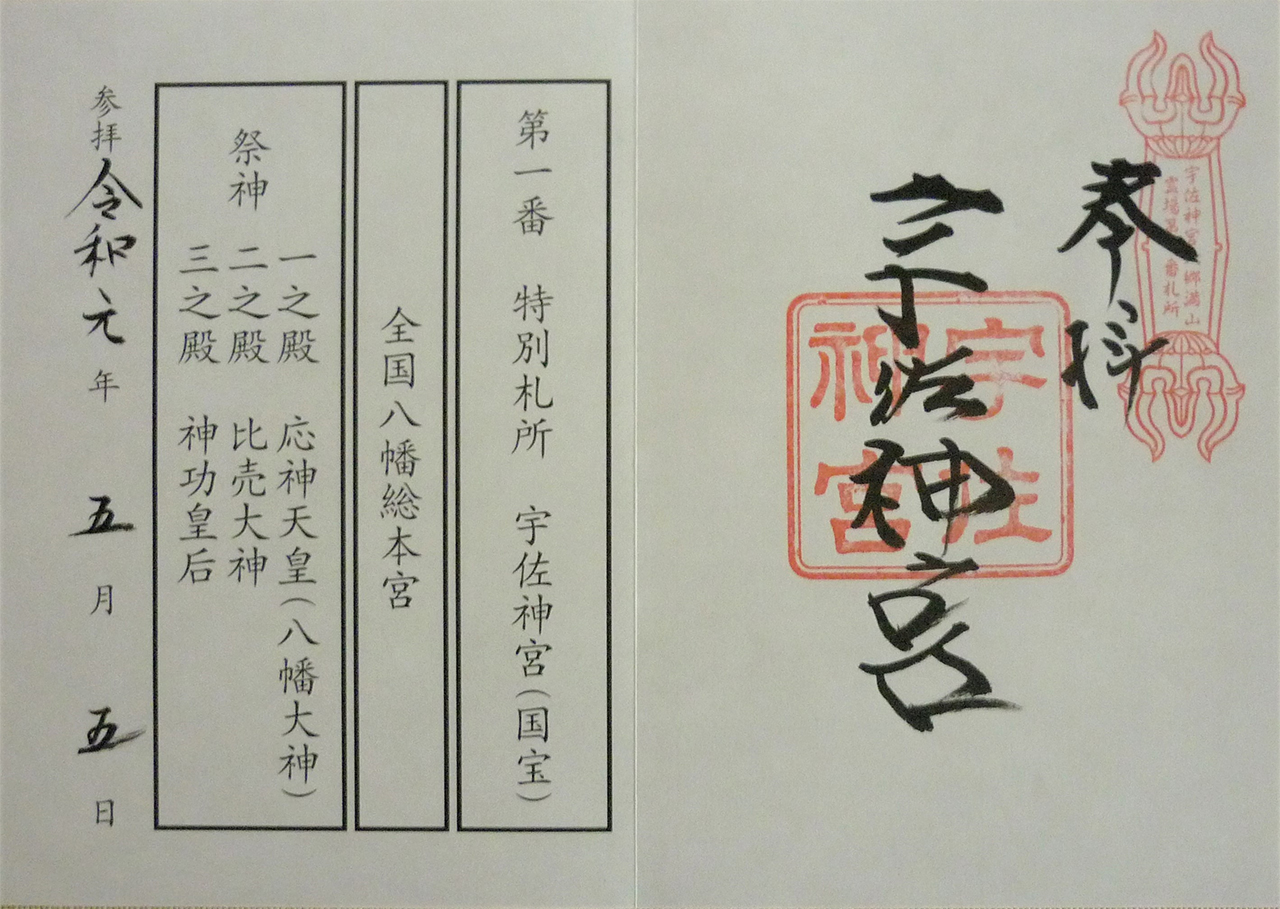 宇佐神宮六郷満山
霊場第一番札所
奉拝
宇佐神宮
宇佐
神宮
第一番 特別札所 宇佐神宮(国宝)
全国八幡総本宮
祭神
一之殿 応神天皇(八幡大神)
二之殿 比売大神
三之殿 神功皇后
参拝 令和元年 五月 五日